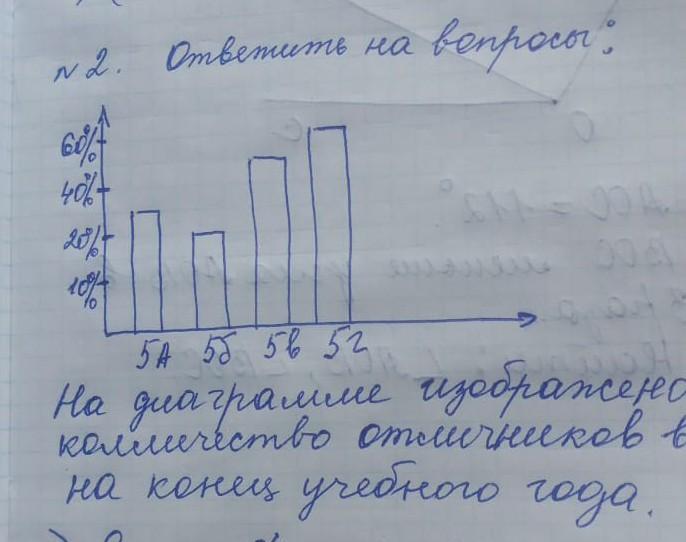 №2. Ответить на вопросы:
60%
40%
20%
10%
5А 5б 5в 5г
На диаграмме изображено
колличество отличников в
на конец учебного года.